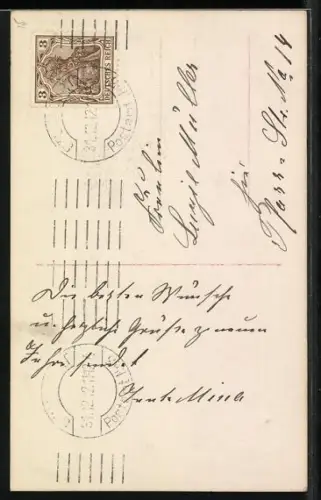 3 3
DEUTSCHES REICH
31.12.12
Postamt
Fräulein
Luzie Müller
für
Pfarr-Str. No 14
Die besten Wünsche
u. herzliche Grüße z. neuen
Jahre sendet
Tante Mina
31.12.12
Postamt